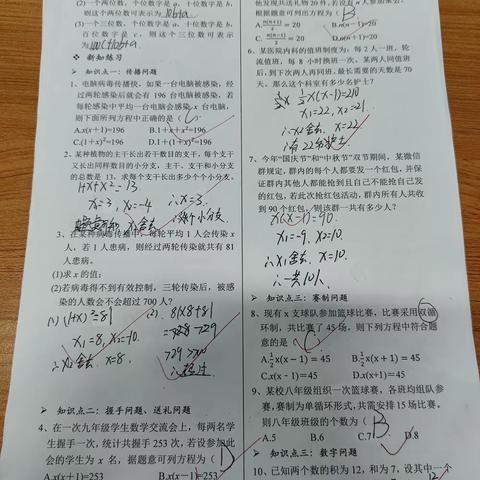 (2)一个两位数，个位数字是 a，十位数字是 b，
则这个两位数可表示为 10b+a
(3)一个三位数，个位数字是 a，十位数字是 b，
百位数字是 c，则这个三位数可表示
为
新知练习
知识点一：传播问题
1、电脑病毒传播快，如果一台电脑被感染，经
过两轮感染后就会有 196 台电脑被感染，若
每轮感染中平均一台电脑会感染 x 台电脑，
则下面所列方程中正确的是（ C ）
A.x(x+1)=196 B.1+x+x²=196
C.(1+x)²=196 D.1+(1+x)²=196
2、某种植物的主干长出若干数目的支干，每个支干
又长出同样数目的小分支，主干、支干和小分支
的总数是 13，求每个支干长出多少个小分支。
1+x+x²=13.
x₁=3, x₂=-4 ∴x=3.
3、在某种病毒传播中，每轮平均 1 人会传染 x
人，若 1 人患病，则经过两轮传染就共有 81
人患病。
(1)求 x 的值；
(2)若病毒得不到有效控制，三轮传染后，被感
染的人数会不会超过 700 人？
(1) (1+x)²=81 (2). 81×8+81
x₁=8, x₂=-10. =729
∴x₂舍去 x=8. 729>700
∴超过
知识点二：握手问题、送礼问题
4、在一次九年级学生数学交流会上，每两名学
生握手一次，统计共握手 253 次，若设参加此
会的学生为 x 名，据题意可列方程为（ D
A.x(x+1)=253 B.x(x－1)=253
他发现共送礼物 20 件，若设
根据题意可列出方程为（ B
A.n(n+1)/2=20 B.n(n-1)=20
C.n(n-1)/2=20 D.n(n+1)=20
6、某医院内科的值班制度为：每 2 人一班，轮
流值班，每 8 小时换班一次，某两人同值班
后，到下次两人再同班，最长需要的天数是 70
天，那么这个科室有多少名护士？
½x(x-1)=210
x₁=22, x₂=-21.
∴x₂舍去. x=22.
∴有22名护士.
7、今年“国庆节”和“中秋节”双节期间，某微信
群规定，群内的每个人都要发一个红包，并保
证群内其他人都能抢到且自己不能抢自己发
的红包，若此次抢红包活动，群内所有人共收
到 90 个红包，则该群一共有多少人？
x(x-1)=90.
x₁=-9, x₂=10.
∴x₁舍去. x=10.
∴一共10人
知识点三：赛制问题
8、现有 x 支球队参加篮球比赛，比赛采用双循
环制，共比赛了 45 场，则下列方程中符合题
意的是（ C ）
A.½x(x－1)=45 B.½x(x+1)=45
C.x(x－1)=45 D.x(x+1)=45
9、某校八年级组织一次篮球赛，各班均组队参
赛，赛制为单循环形式，共需安排 15 场比赛，
则八年级班级的个数为（ B
A.5 B.6 C.7 D.8
知识点三：数字问题
10、已知两个数的积为 12，和为 7，设其中一个